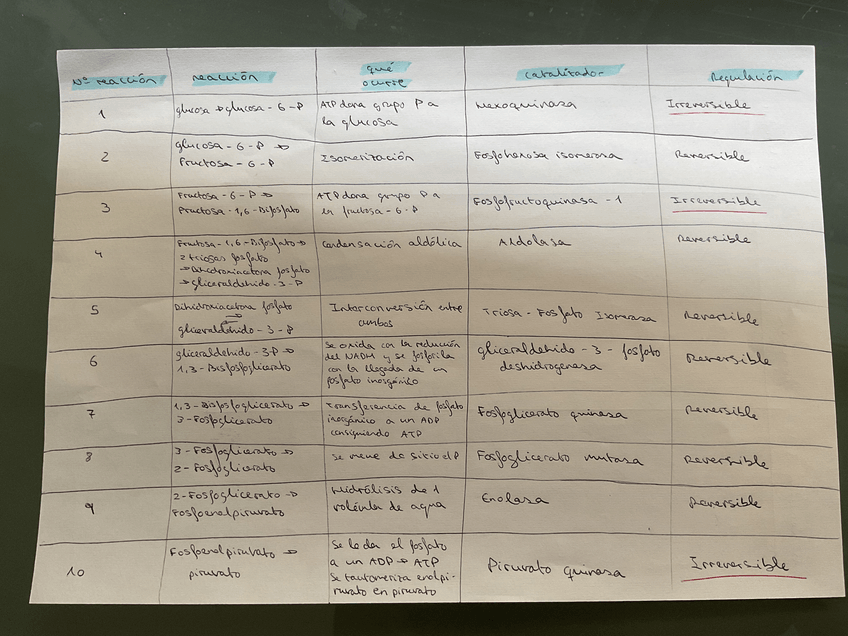 Nº reacción
reacción
qué
ocurre
catalizador
Regulación
1
glucosa → glucosa - 6 - P
ATP dona grupo P a
la glucosa
Hexoquinasa
Irreversible
2
glucosa - 6 - P →
Fructosa - 6 - P
Isomerización
Fosfohexosa isomerasa
Reversible
3
Fructosa - 6 - P →
Fructosa - 1,6 - Bifosfato
ATP dona grupo P a
la fructosa - 6 - P
Fosfofructoquinasa - 1
Irreversible
4
Fructosa - 1,6 - Bifosfato →
2 triosas fosfato
→ Dihidroxiacetona fosfato
→ gliceraldehido - 3 - P
Condensación aldólica
Aldolasa
Reversible
5
Dihidroxiacetona fosfato
gliceraldehido - 3 - P
Interconversión entre
ambos
Triosa - Fosfato Isomerasa
Reversible
6
gliceraldehido - 3P →
1,3 - Bisfosfoglicerato
Se oxida con la reducción
del NADH y se fosforila
con la llegada de un
fosfato inorgánico
gliceraldehido - 3 - fosfato
deshidrogenasa
Reversible
7
1,3 - Bisfosfoglicerato →
3 - Fosfoglicerato
Transferencia de fosfato
inorgánico a un ADP
consiguiendo ATP
Fosfoglicerato quinasa
Reversible
8
3 - Fosfoglicerato →
2 - Fosfoglicerato
Se mueve de sitio el P
Fosfoglicerato mutasa
Reversible
9
2 - Fosfoglicerato →
Fosfoenolpiruvato
Hidrólisis de 1
molécula de agua
Enolasa
Reversible
10
Fosfoenolpiruvato →
piruvato
Se le da el fosfato
a un ADP → ATP
Se tautomeriza enolpi-
ruvato en piruvato
Piruvato quinasa
Irreversible